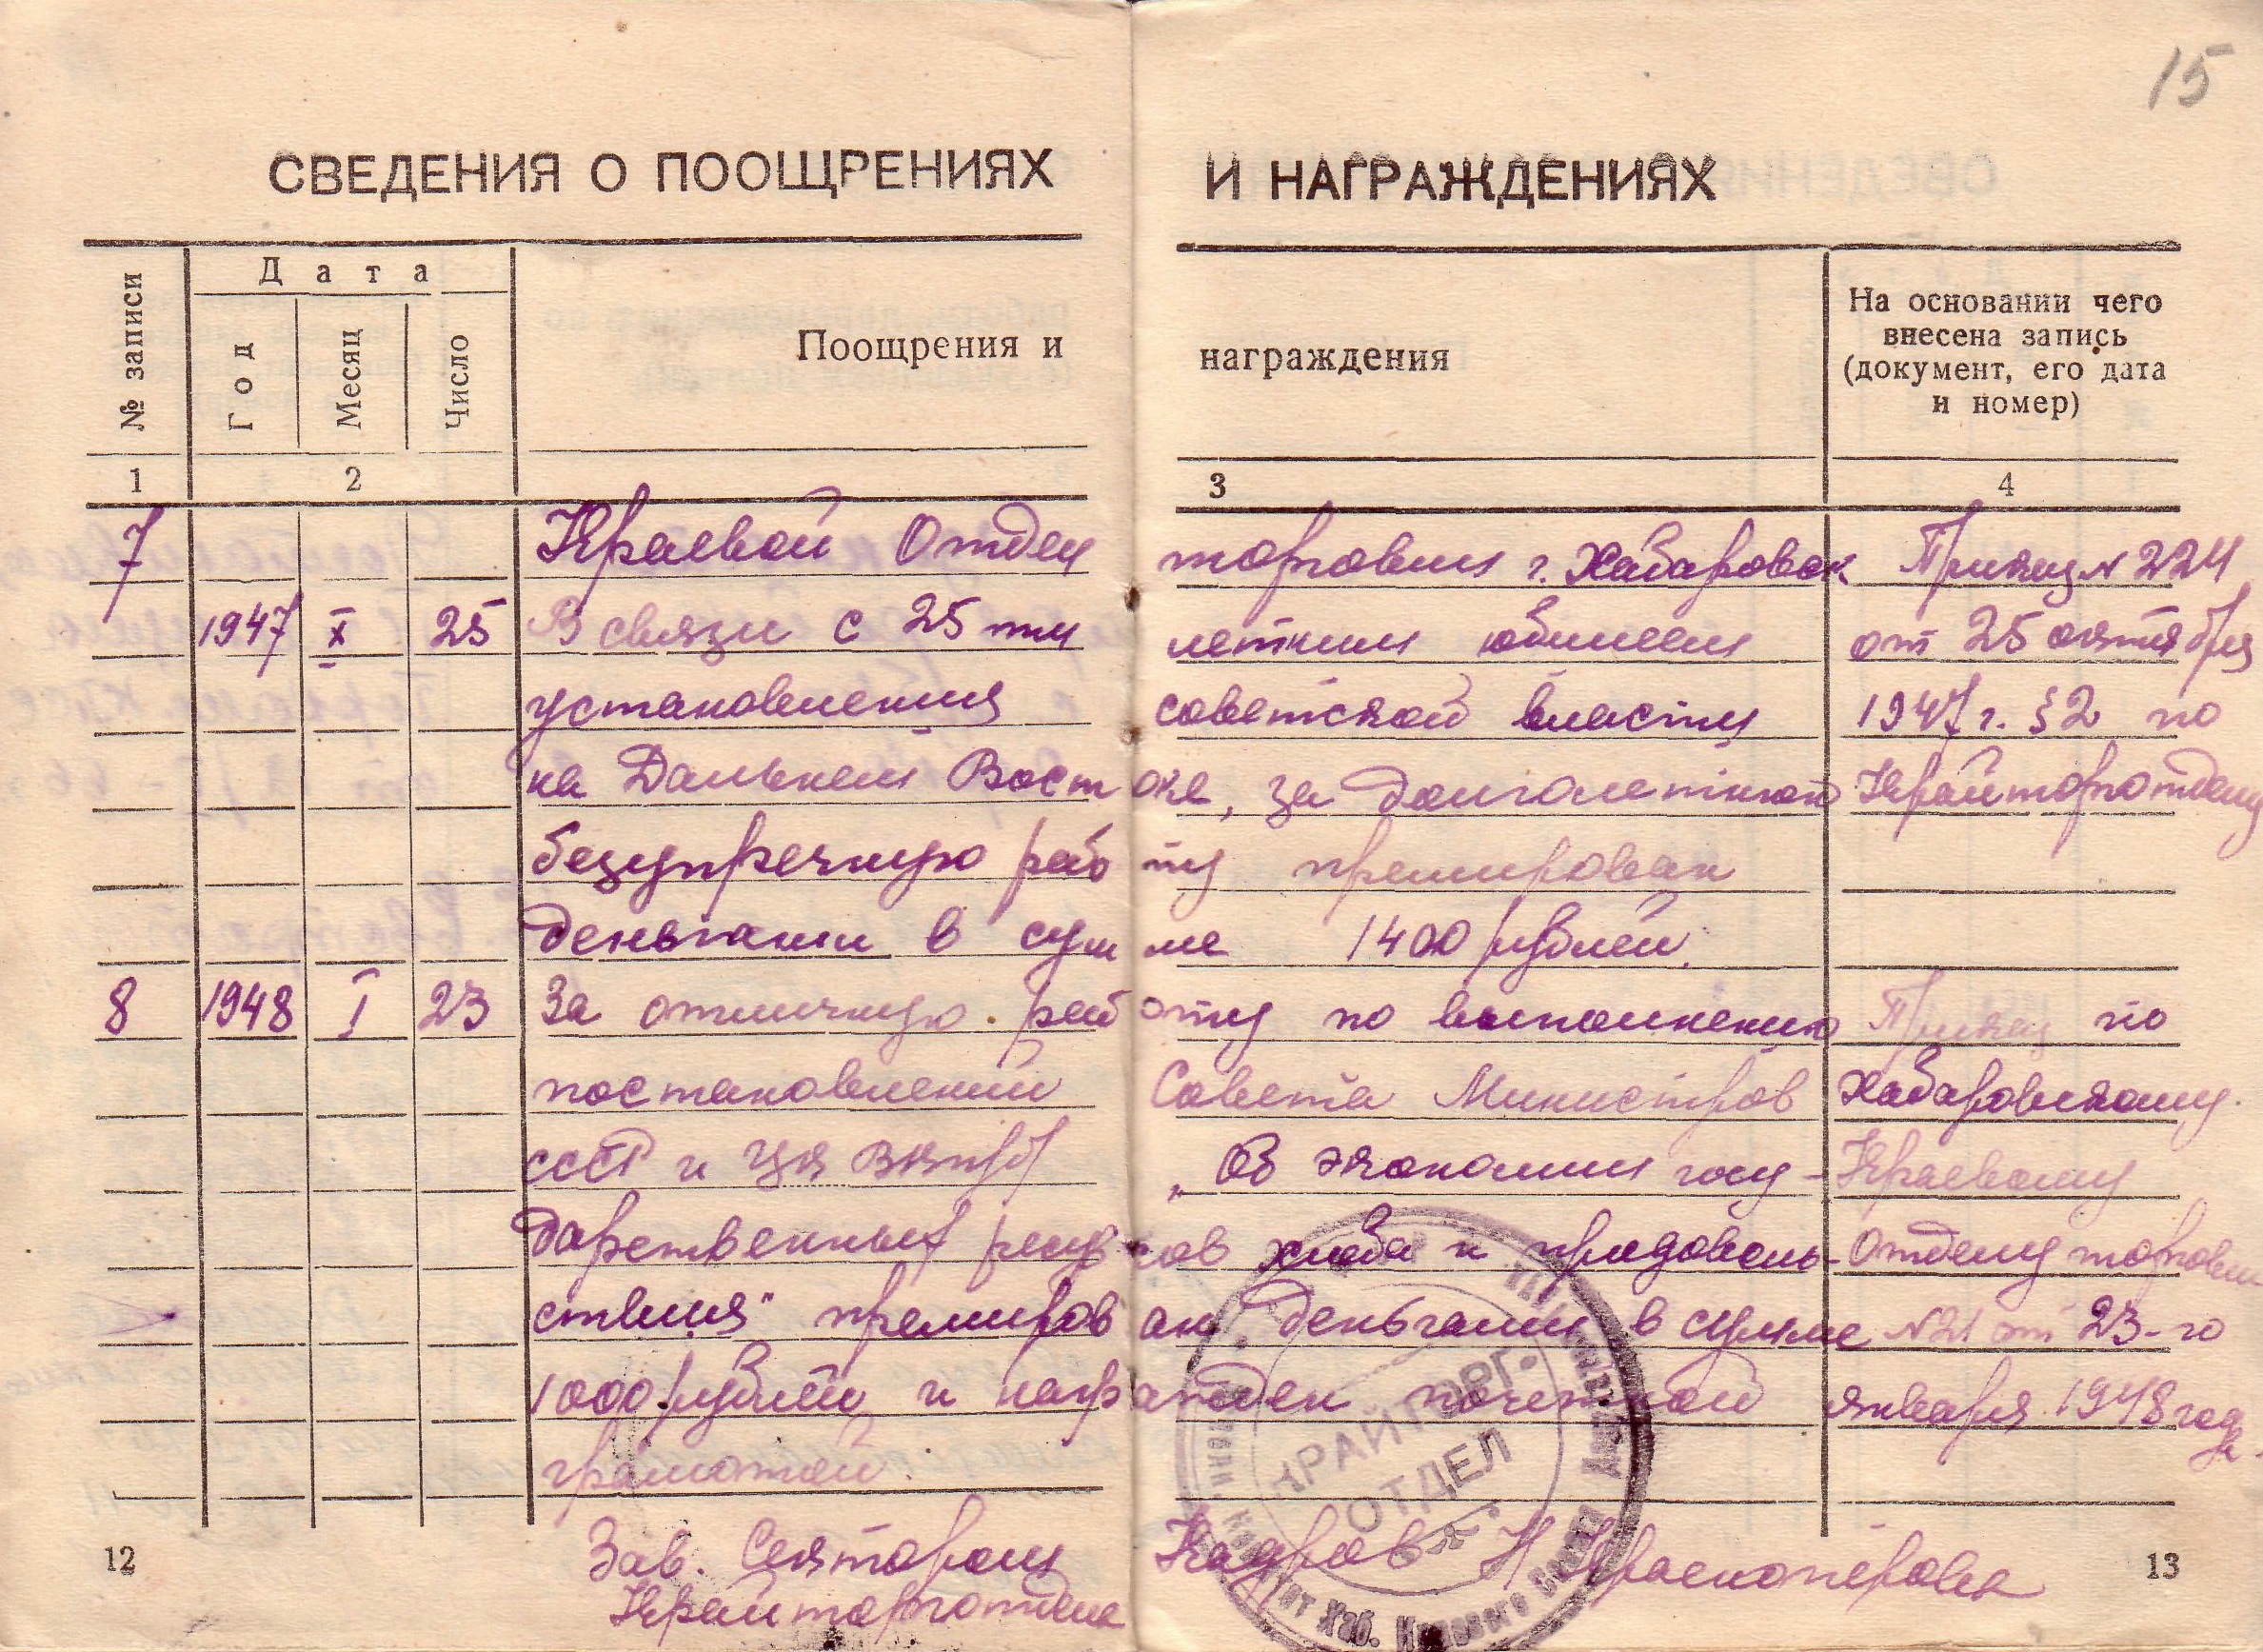 15
СВЕДЕНИЯ О ПООЩРЕНИЯХ И НАГРАЖДЕНИЯХ
№ записи
Дата
Год
Месяц
Число
Поощрения и награждения
На основании чего
внесена запись
(документ, его дата
и номер)
1 2 3 4
7 Краевой Отдел торговли г. Хабаровск Приказ N 224
1947 X 25 В связи с 25 ти летним юбилеем от 25 октября
установления советской власти 1947 г. §2 по
на Дальнем Востоке, за долголетнюю Крайторготделу
безупречную работу премирован
деньгами в сумме 1400 рублей.
8 1948 I 23 За отличную работу по выполнению Приказ по
постановлений Совета Министров Хабаровскому
СССР и ЦК ВКП(б) „Об экономии госу- Краевому
дарственных ресурсов хлеба и продоволь- Отделу торговли
ствия" премирован деньгами в сумме N21 от 23-го
1000 рублей и награжден почетной января 1948 года
грамотой.
Зав. Сектором Кадров Н Краснопёрова
Крайторготдела
КРАЙТОРГ-
ОТДЕЛ
Хаб. Краевого Совета
12
13